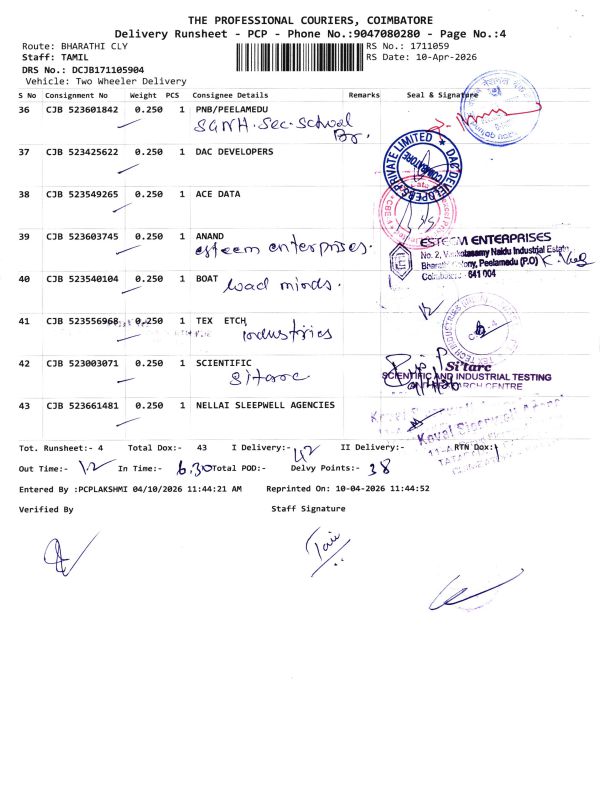 THE PROFESSIONAL COURIERS, COIMBATORE
Delivery Runsheet - PCP - Phone No.:9047080280 - Page No.:4
Route: BHARATHI CLY
RS No.: 1711059
Staff: TAMIL
RS Date: 10-Apr-2026
DRS No.: DCJB171105904
Vehicle: Two Wheeler Delivery
S No Consignment No Weight PCS Consignee Details Remarks Seal & Signature
36 CJB 523601842 0.250 1 PNB/PEELAMEDU
37 CJB 523425622 0.250 1 DAC DEVELOPERS
DAC DEVELOPERS PRIVATE LIMITED
COIMBATORE
38 CJB 523549265 0.250 1 ACE DATA
39 CJB 523603745 0.250 1 ANAND
esteem enterprises.
ESTEEM ENTERPRISES
No. 2, Venkatasamy Naidu Industrial Estate,
Bharathi Colony, Peelamedu (P.O)
Coimbatore - 641 004
40 CJB 523540104 0.250 1 BOAT
Load minds.
41 CJB 523556968 0.250 1 TEX ETCH
industries
42 CJB 523003071 0.250 1 SCIENTIFIC
Sitarc
Si'tarc
SCIENTIFIC AND INDUSTRIAL TESTING
43 CJB 523661481 0.250 1 NELLAI SLEEPWELL AGENCIES
Kovai Sleepwell
Tot. Runsheet:- 4 Total Dox:- 43 I Delivery:- 42 II Delivery:- RTN Dox:1
Out Time:- 12 In Time:- 6.30 Total POD:- Delvy Points:- 38
Entered By :PCPLAKSHMI 04/10/2026 11:44:21 AM Reprinted On: 10-04-2026 11:44:52
Verified By Staff Signature